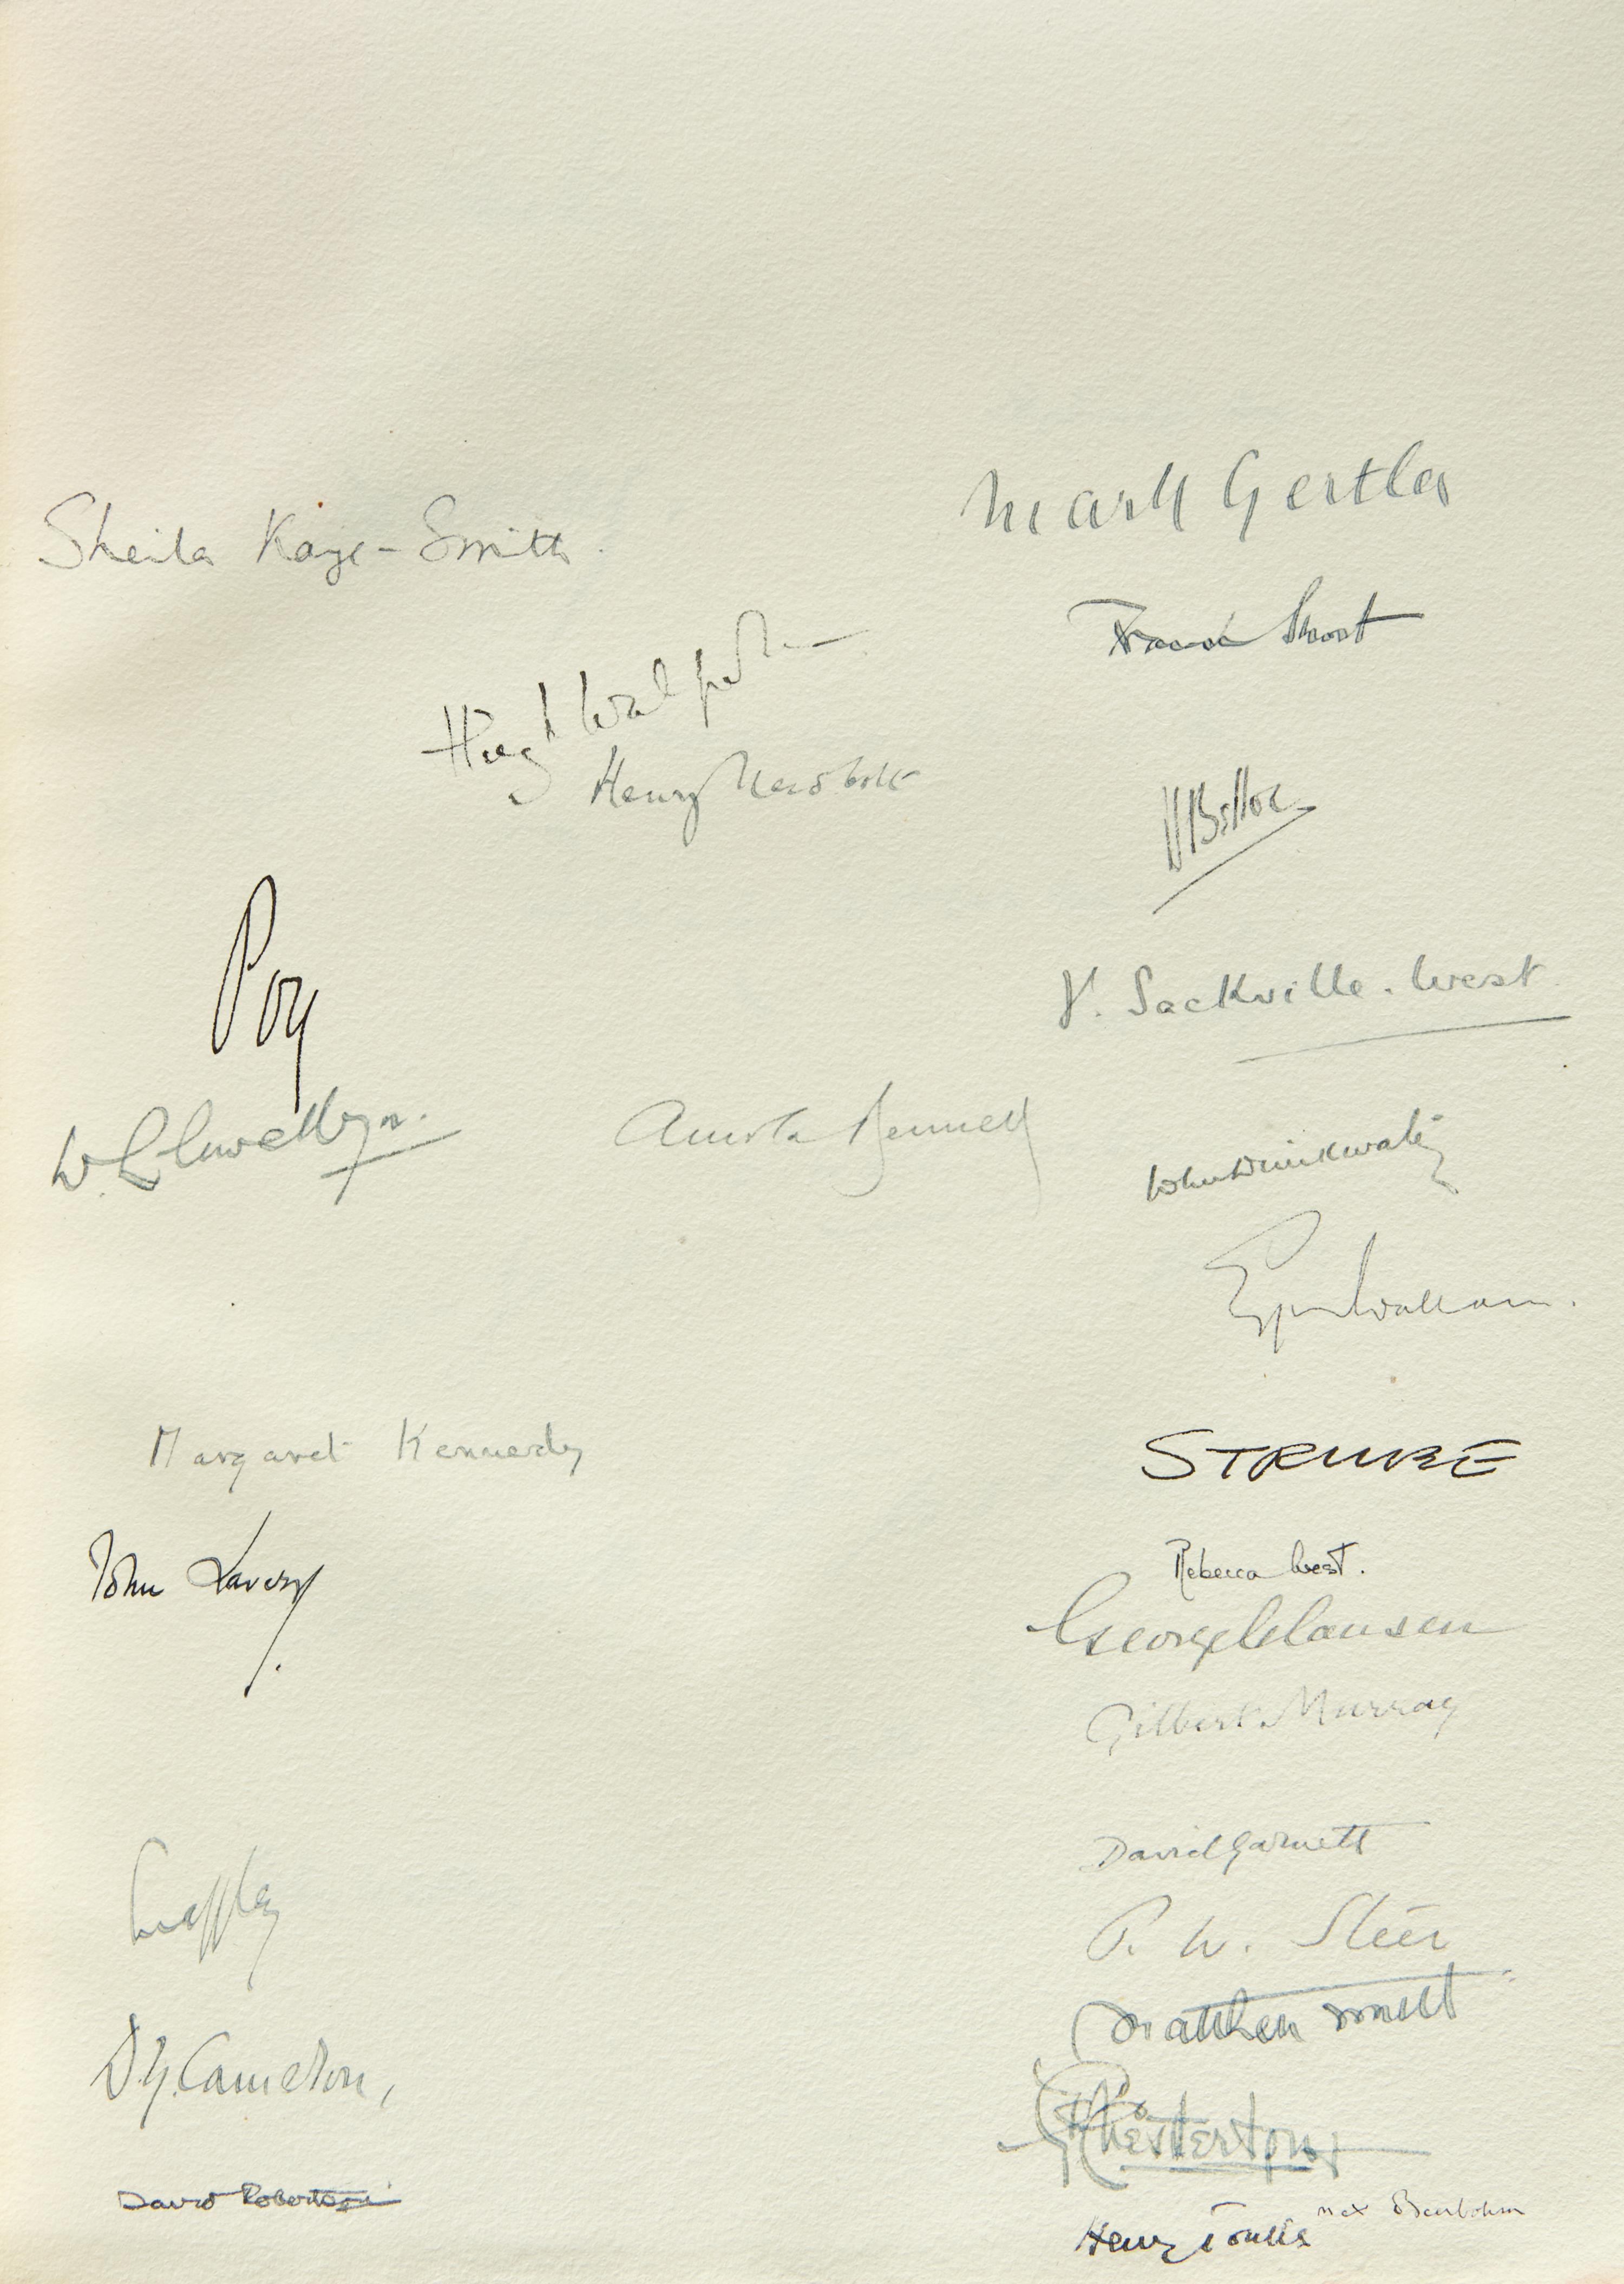 Mark Gertler
Sheila Kaye-Smith.
Frank Short
Hugh Walpole
Henry Newbolt
HBelloc
Poy
V. Sackville-West.
W. Llewellyn.
Arnold Bennett
John Drinkwater
Egerton Wallaam.
Margaret Kennedy
STRUBE
John Lavery
Rebecca West.
George Clausen
Gilbert Murray
David Garnett
P. W. Steer
Matthew Smith
D.Y. Cameron,
G.K. Chesterton
David Robertson
Max Beerbohm
Henry Tonks